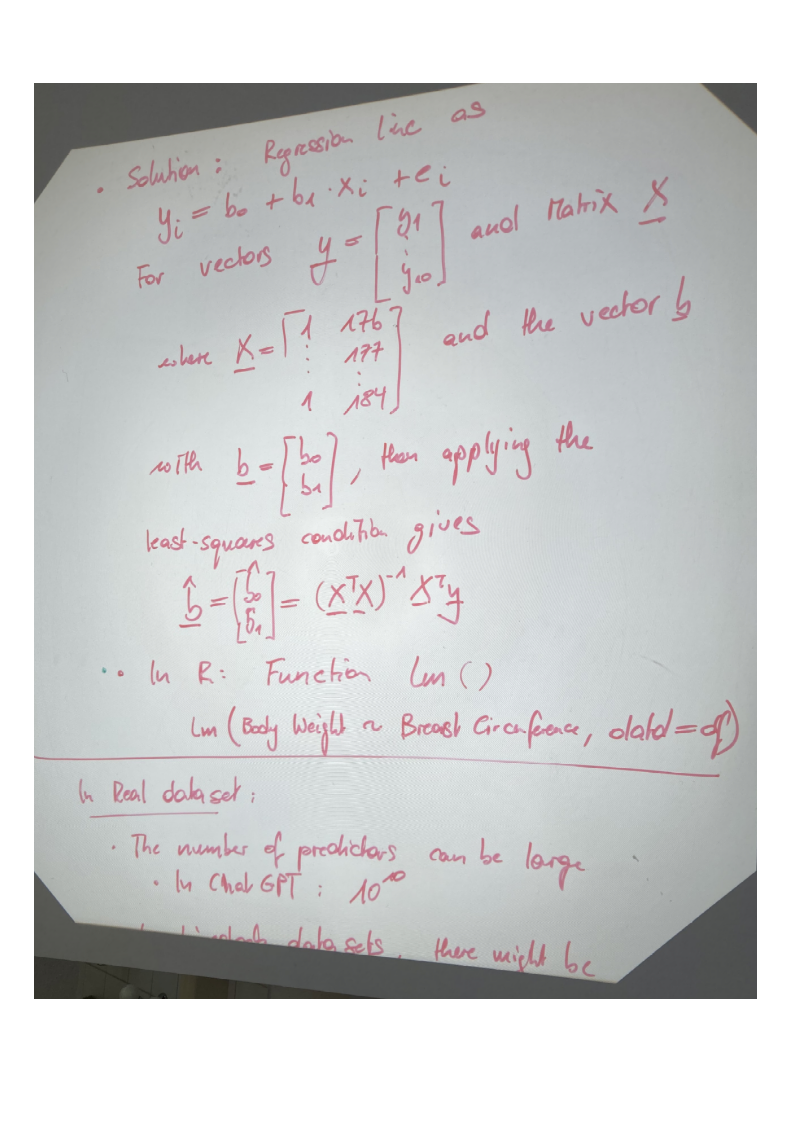 • Solution: Regression line as
yᵢ = b₀ + b₁ · xᵢ + eᵢ
For vectors y = [y₁ ⋮ y₁₀] and Matrix X
where X = [1 176 ⋮ 177 ⋮ 1 184] and the vector b
with b = [b₀ b₁], then applying the
least-squares condition gives
b̂ = [b̂₀ b̂₁] = (XᵀX)⁻¹ Xᵀy
• In R: Function lm()
lm(Body Weight ~ Breast Circumference, data=df)
In Real dataset:
• The number of predictors can be large
• In ChatGPT: 10¹⁰
data sets, there might be